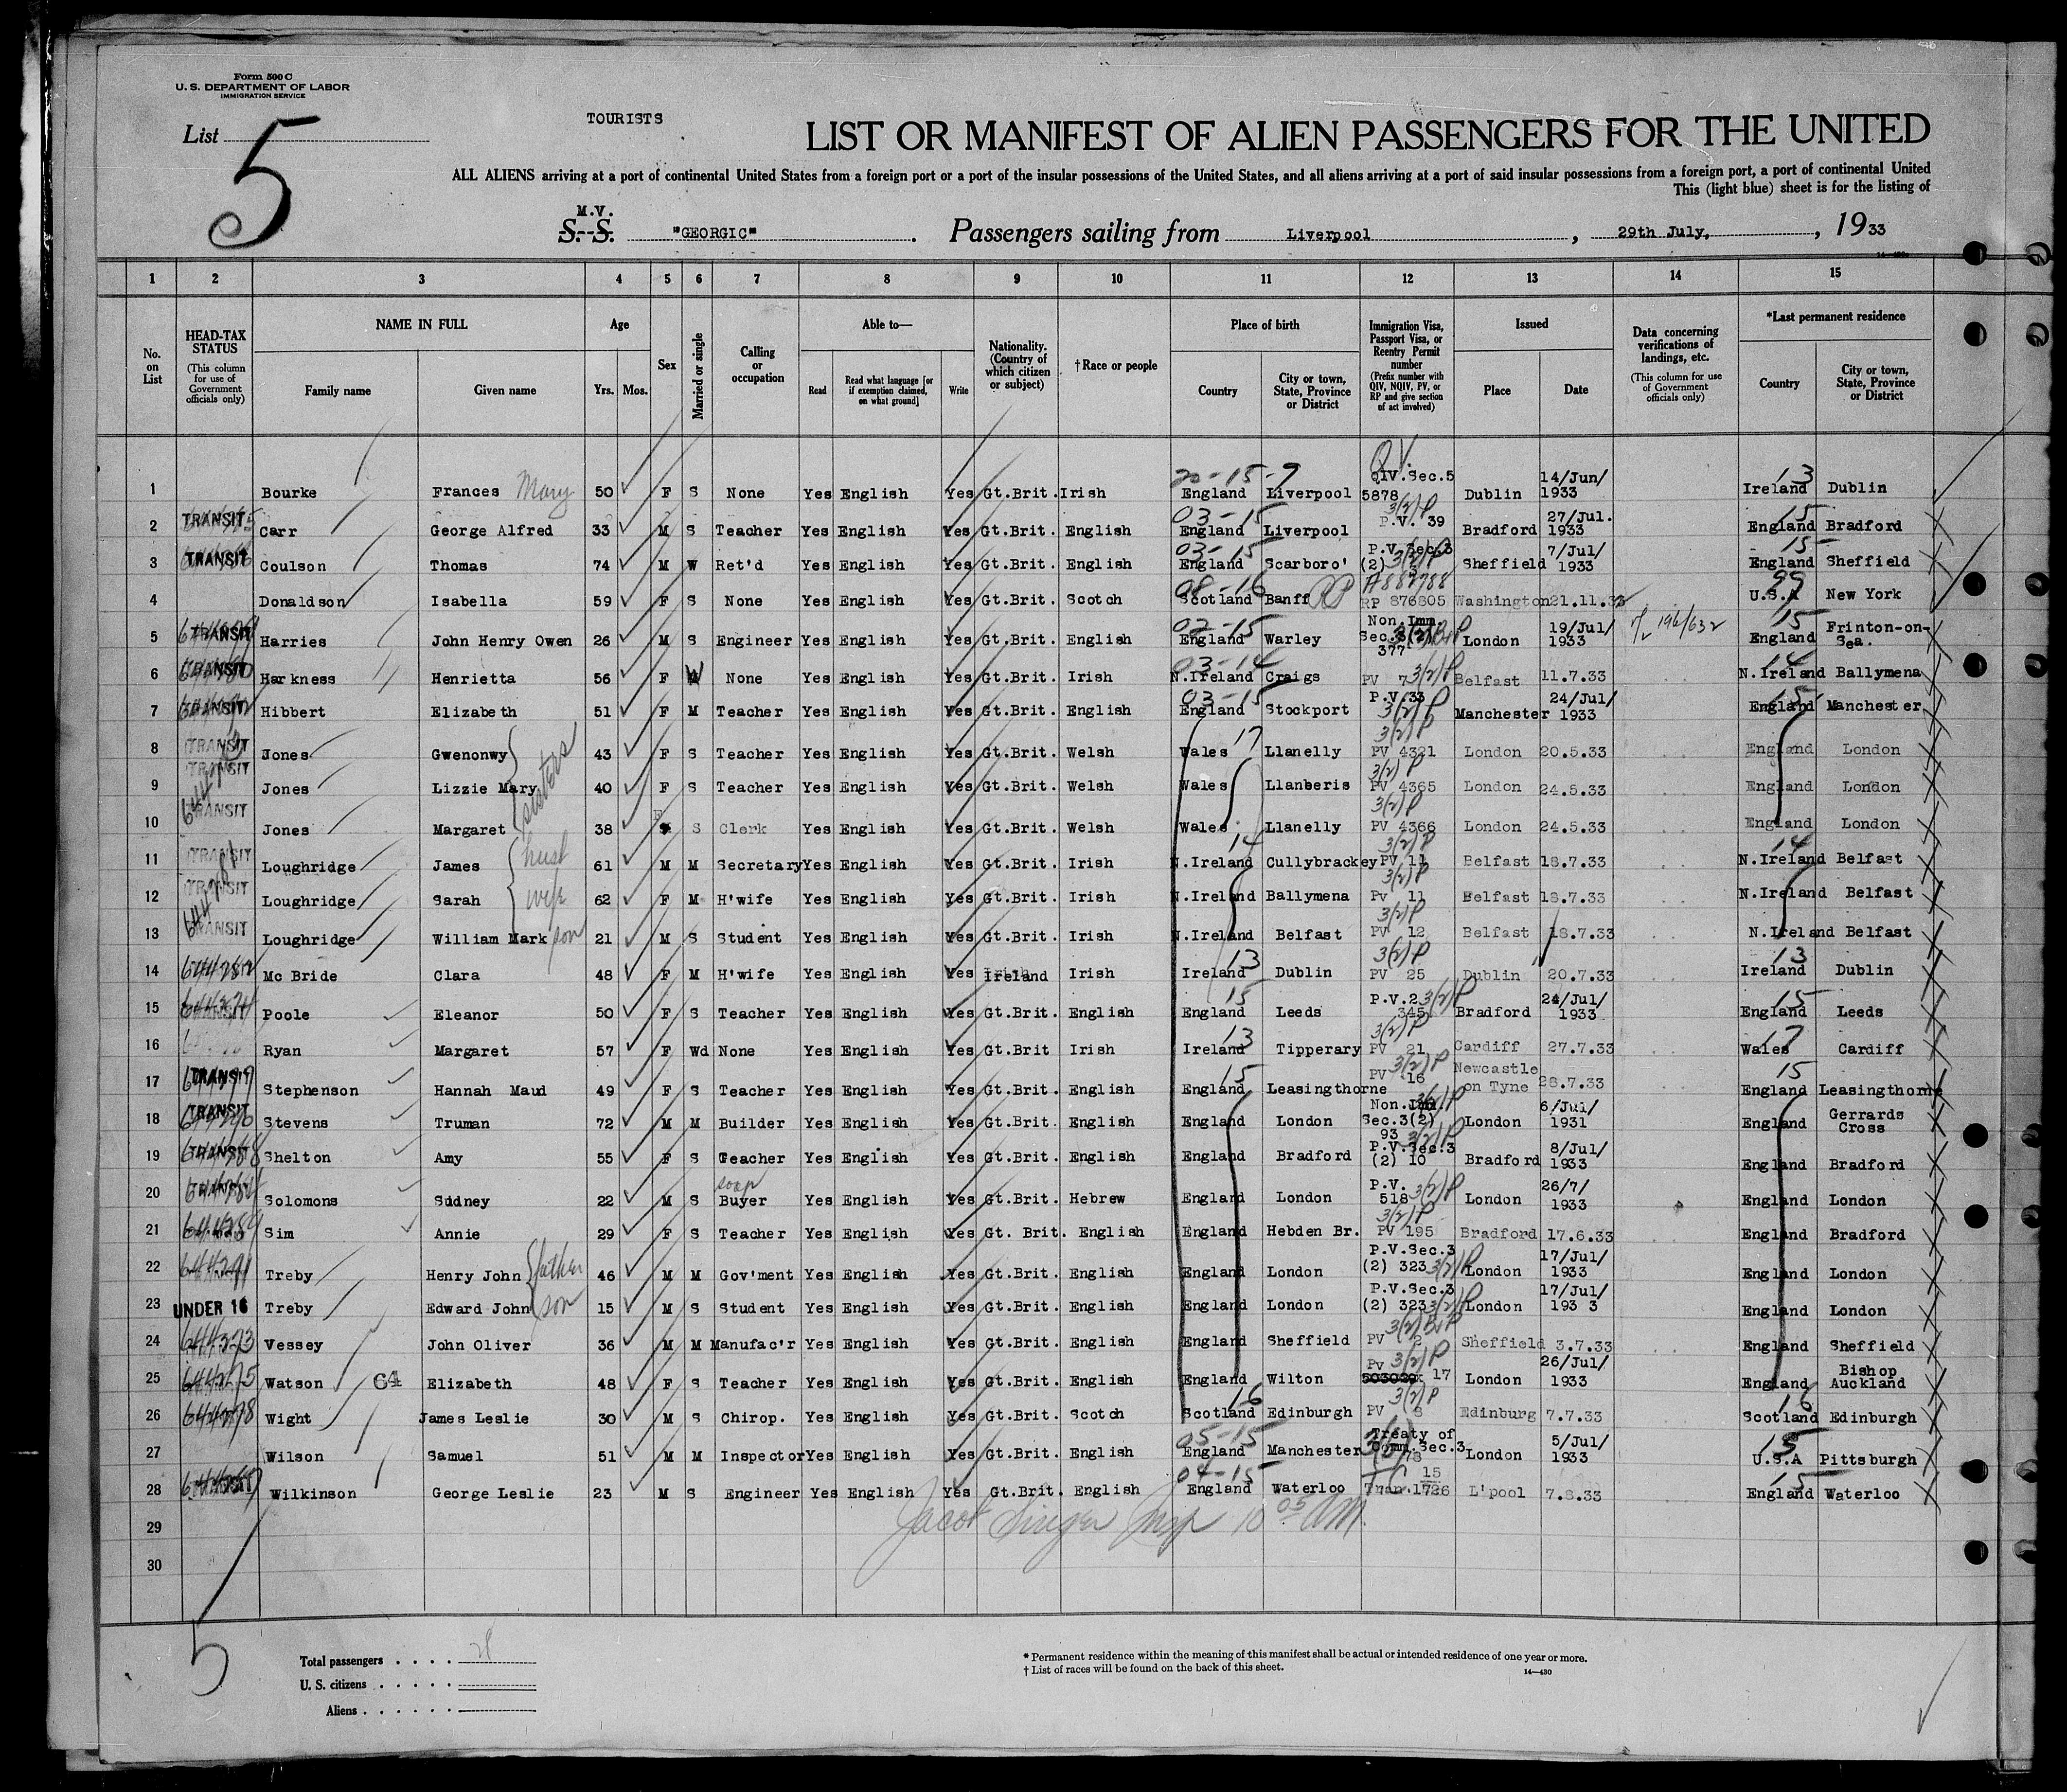 Form 500 C
U. S. DEPARTMENT OF LABOR
IMMIGRATION SERVICE
List 5
TOURISTS
LIST OR MANIFEST OF ALIEN PASSENGERS FOR THE UNITED
ALL ALIENS arriving at a port of continental United States from a foreign port or a port of the insular possessions of the United States, and all aliens arriving at a port of said insular possessions from a foreign port, a port of continental United
This (light blue) sheet is for the listing of
M.V.
S. S. "GEORGIC". Passengers sailing from Liverpool, 29th July, 1933
1 2 3 4 5 6 7 8 9 10 11 12 13 14 15
No. on List
HEAD-TAX STATUS
(This column for use of Government officials only)
NAME IN FULL
Family name Given name
Age
Yrs. Mos.
Sex
Married or single
Calling or occupation
Able to—
Read
Read what language [or if exemption claimed, on what ground]
Write
Nationality. (Country of which citizen or subject)
†Race or people
Place of birth
Country
City or town, State, Province or District
Immigration Visa, Passport Visa, or Reentry Permit number
(Prefix number with QIV, NQIV, PV, or RP and give section of act involved)
Issued
Place Date
Data concerning verifications of landings, etc.
(This column for use of Government officials only)
*Last permanent residence
Country
City or town, State, Province or District
1 Bourke Frances Mary 50 F S None Yes English Yes Gt.Brit. Irish 20-15-7 England Liverpool QIV.Sec.5 5878 Dublin 14/Jun/1933 13 Ireland Dublin
2 TRANSIT Carr George Alfred 33 M S Teacher Yes English Yes Gt.Brit. English 03-15 England Liverpool 3(2)P P.V. 39 Bradford 27/Jul.1933 15 England Bradford
3 TRANSIT Coulson Thomas 74 M W Ret'd Yes English Yes Gt.Brit. English 03-15 England Scarboro' P.V.Sec.3 (2) 3(2)P Sheffield 7/Jul/1933 15 England Sheffield
4 Donaldson Isabella 59 F S None Yes English Yes Gt.Brit. Scotch 08-16 Scotland Banff RP RP 876805 Washington 21.11.32 99 U.S.A New York
5 TRANSIT Harries John Henry Owen 26 M S Engineer Yes English Yes Gt.Brit. English 02-15 England Warley Non.Imm. Sec.3(2) 377 London 19/Jul/1933 15 England Frinton-on-Sea.
6 TRANSIT Harkness Henrietta 56 F W None Yes English Yes Gt.Brit. Irish 03-14 N.Ireland Craigs PV 7 3(2)P Belfast 11.7.33 14 N.Ireland Ballymena
7 TRANSIT Hibbert Elizabeth 51 F M Teacher Yes English Yes Gt.Brit. English 03-15 England Stockport P.V.33 3(2)P Manchester 24/Jul/1933 15 England Manchester
8 TRANSIT Jones Gwenonwy 43 F S Teacher Yes English Yes Gt.Brit. Welsh 17 Wales Llanelly 3(2)P PV 4321 London 20.5.33 England London
sisters
9 TRANSIT Jones Lizzie Mary 40 F S Teacher Yes English Yes Gt.Brit. Welsh Wales Llanberis 3(2)P PV 4365 London 24.5.33 England London
10 TRANSIT Jones Margaret 38 F S Clerk Yes English Yes Gt.Brit. Welsh Wales Llanelly 3(2)P PV 4366 London 24.5.33 England London
11 TRANSIT Loughridge James husb 61 M M Secretary Yes English Yes Gt.Brit. Irish 14 N.Ireland Cullybrackey 3(2)P PV 11 Belfast 18.7.33 14 N.Ireland Belfast
12 TRANSIT Loughridge Sarah wife 62 F M H'wife Yes English Yes Gt.Brit. Irish N.Ireland Ballymena 3(2)P PV 11 Belfast 18.7.33 N.Ireland Belfast
13 TRANSIT Loughridge William Mark son 21 M S Student Yes English Yes Gt.Brit. Irish N.Ireland Belfast 3(2)P PV 12 Belfast 18.7.33 N.Ireland Belfast
14 Mc Bride Clara 48 F M H'wife Yes English Yes Ireland Irish 13 Ireland Dublin 3(2)P PV 25 Dublin 20.7.33 13 Ireland Dublin
15 Poole Eleanor 50 F S Teacher Yes English Yes Gt.Brit. English 15 England Leeds P.V.2 3(2)P 345 Bradford 24/Jul/1933 15 England Leeds
16 Ryan Margaret 57 F Wd None Yes English Yes Gt.Brit Irish 13 Ireland Tipperary 3(2)P PV 21 Cardiff 27.7.33 17 Wales Cardiff
17 TRANSIT Stephenson Hannah Maud 49 F S Teacher Yes English Yes Gt.Brit. English 15 England Leasingthorne 3(2)P PV 16 Newcastle on Tyne 28.7.33 15 England Leasingthorne
18 TRANSIT Stevens Truman 72 M M Builder Yes English Yes Gt.Brit. English England London Non.Imm. Sec.3(2) 93 London 6/Jul/1931 England Gerrards Cross
19 TRANSIT Shelton Amy 55 F S Teacher Yes English Yes Gt.Brit. English England Bradford 3(2)P P.V.Sec.3 (2) 10 Bradford 8/Jul/1933 England Bradford
20 Solomons Sidney 22 M S soap Buyer Yes English Yes Gt.Brit. Hebrew England London P.V. 518 3(2)P London 26/7/1933 England London
21 Sim Annie 29 F S Teacher Yes English Yes Gt. Brit. English England Hebden Br. 3(2)P PV 195 Bradford 17.6.33 England Bradford
22 Treby Henry John father 46 M M Gov'ment Yes English Yes Gt.Brit. English England London P.V.Sec.3 (2) 323 3(2)P London 17/Jul/1933 England London
23 UNDER 16 Treby Edward John son 15 M S Student Yes English Yes Gt.Brit. English England London P.V.Sec.3 (2) 323 3(2)P London 17/Jul/193 3 England London
24 Vessey John Oliver 36 M M Manufac'r Yes English Yes Gt.Brit. English England Sheffield PV 2 Sheffield 3.7.33 England Sheffield
25 Watson 64 Elizabeth 48 F S Teacher Yes English Yes Gt.Brit. English England Wilton PV 3(2)P 17 London 26/Jul/1933 England Bishop Auckland
26 Wight James Leslie 30 M S Chirop. Yes English Yes Gt.Brit. Scotch 16 Scotland Edinburgh 3(2)P PV 8 Edinburg 7.7.33 16 Scotland Edinburgh
27 Wilson Samuel 51 M M Inspector Yes English Yes Gt.Brit. English 05-15 England Manchester Treaty of Comm.Sec.3 78 London 5/Jul/1933 15 U.S.A Pittsburgh
28 Wilkinson George Leslie 23 M S Engineer Yes English Yes Gt.Brit. English 04-15 England Waterloo 15 Tran.1726 L'pool 7.8.33 15 England Waterloo
29 Jacob Singer Insp 10 05 AM.
30
5
Total passengers . . . . 28
U. S. citizens . . . . .
Aliens . . . . . .
* Permanent residence within the meaning of this manifest shall be actual or intended residence of one year or more.
† List of races will be found on the back of this sheet.
14—430